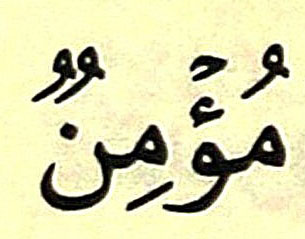 مُؤۡمِنٌ